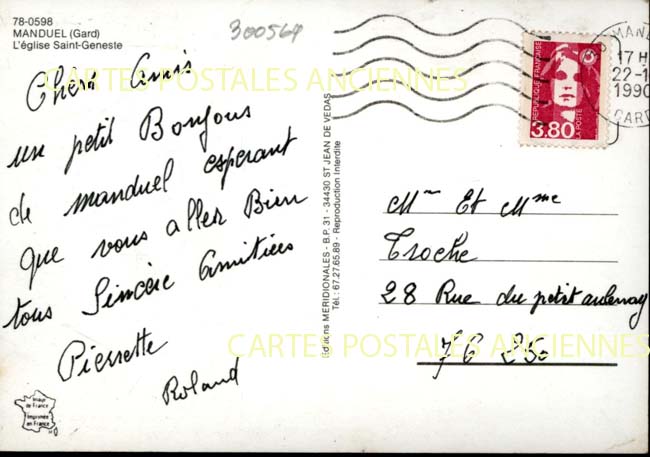 78-0598
MANDUEL (Gard)
L'église Saint-Geneste
300564
CARTES POSTALES ANCIENNES
Chers Amis
un petit Bonjous
de manduel esperant
que vous aller Bien
tous Sincère Amitiées
Pierrette
Roland
Image de France
Imprimée en France
Editions MERIDIONALES - B.P. 31 - 34430 ST JEAN DE VEDAS
Tél.: 67.27.65.89 - Reproduction Interdite
REPUBLIQUE FRANÇAISE
LA POSTE
3,80
MAND
17 H
22-1
1990
GARD
Mr Et Mme
Troche
28 Rue du petit aulenay
CARTES POSTALES ANCIENNES